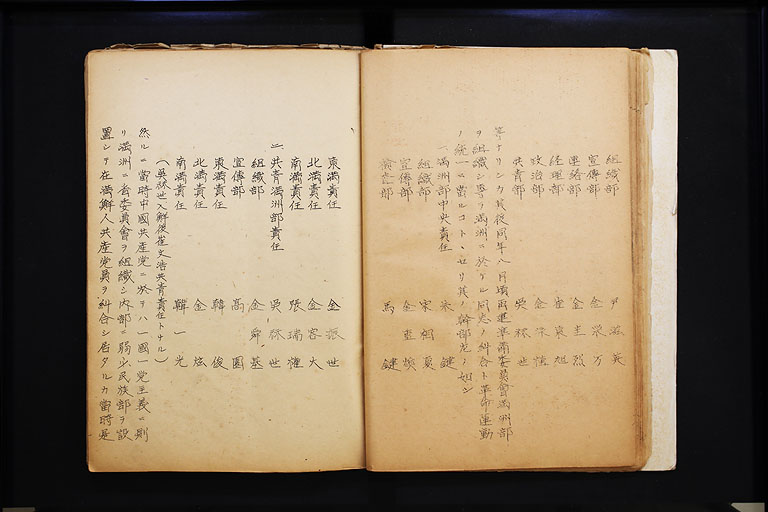 組織部 尹滋英
宣傳部 金榮万
連絡部 金圭烈
経理部 崔東旭
政治部 金
共青部 吳林世
等ナリシカ其後同年八月頃再建準備委員會満洲部
ヲ組織シ専ラ満洲ニ於ケル同志ノ糾合ト革命運動
ノ統一ニ當ルコトトセリ其ノ幹部左ノ如シ
一、満洲部中央責任 朱健
組織部 宋
宣傳部 金
檢査部 馬鍵
東満責任 金振世
北満責任 金容大
南満責任 張瑞權
二、共青満洲部責任 吳林世
組織部 金舜基
宣傳部 高圓
東満責任 韓俊
北満責任 金炫
南満責任 韓一光
(吳林世入鮮後崔文浩共青責任トナル)
然ルニ當時中國共産党ニ於テハ一國一党主義ニ則
リ満洲ニ省委員會ヲ組織シ内部ニ弱少民族部ヲ設
置シテ在満鮮人共産党員ヲ糾合シ居タルカ當時是